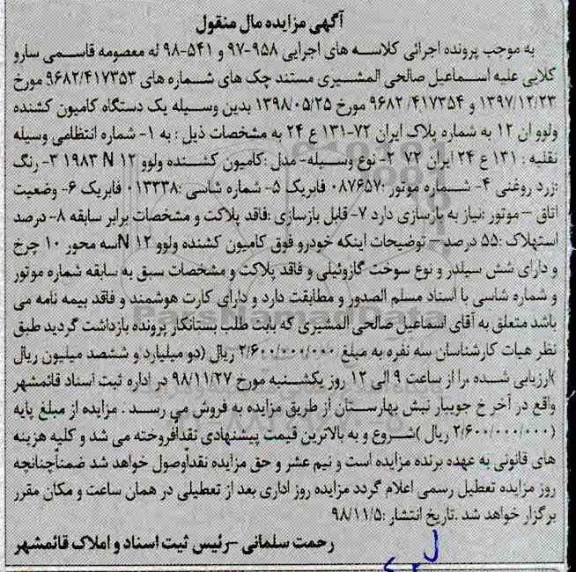 آگهی مزایده مال منقول
به موجب پرونده اجرائی کلاسه های اجرایی ۹۵۸-۹۷ و ۵۴۱-۹۸ له معصومه قاسمی سارو
کلایی علیه اسماعیل صالحی المشیری مستند چک های شماره های ۹۶۸۲/۴۱۷۳۵۳ مورخ
۱۳۹۷/۱۲/۲۳ و ۹۶۸۲/۴۱۷۳۵۴ مورخ ۱۳۹۸/۰۵/۲۵ بدین وسیله یک دستگاه کامیون کشنده
ولوو ان ۱۲ به شماره پلاک ایران ۷۲-۱۳۱ ع ۲۴ به مشخصات ذیل : به ۱- شماره انتظامی وسیله
نقلیه : ۱۳۱ ع ۲۴ ایران ۷۲ ۲- نوع وسیله- مدل :کامیون کشنده ولوو N ۱۲ 1983 ۳- رنگ
:زرد روغنی ۴- شماره موتور :۰۸۷۶۵۷ فابریک ۵- شماره شاسی :۰۱۳۳۳۸ فابریک ۶- وضعیت
اتاق – موتور :نیاز به بازسازی دارد ۷- قابل بازسازی :فاقد پلاکت و مشخصات برابر سابقه ۸- درصد
استهلاک :۵۵ درصد– توضیحات اینکه خودرو فوق کامیون کشنده ولوو N ۱۲سه محور ۱۰ چرخ
و دارای شش سیلندر و نوع سوخت گازوئیلی و فاقد پلاکت و مشخصات سبق به سابقه شماره موتور
و شماره شاسی با اسناد مسلم الصدور و مطابقت دارد و دارای کارت هوشمند و فاقد بیمه نامه می
باشد متعلق به آقای اسماعیل صالحی المشیری که بابت طلب بستانکار پرونده بازداشت گردید طبق
نظر هیات کارشناسان سه نفره به مبلغ ۲/۶۰۰/۰۰۰/۰۰۰ ریال (دو میلیارد و ششصد میلیون ریال
)ارزیابی شده ،را از ساعت ۹ الی ۱۲ روز یکشنبه مورخ ۹۸/۱۱/۲۷ در اداره ثبت اسناد قائمشهر
واقع در آخر خ جویبار نبش بهارستان از طریق مزایده به فروش می رسد . مزایده از مبلغ پایه
(۲/۶۰۰/۰۰۰/۰۰۰ ریال )شروع و به بالاترین قیمت پیشنهادی نقداًفروخته می شد و کلیه هزینه
های قانونی به عهده برنده مزایده است و نیم عشر و حق مزایده نقداًوصول خواهد شد ضمناًچنانچه
روز مزایده تعطیل رسمی اعلام گردد مزایده روز اداری بعد از تعطیلی در همان ساعت و مکان مقرر
برگزار خواهد شد .تاریخ انتشار :۹۸/۱۱/۵
رحمت سلمانی –رئیس ثبت اسناد و املاک قائمشهر